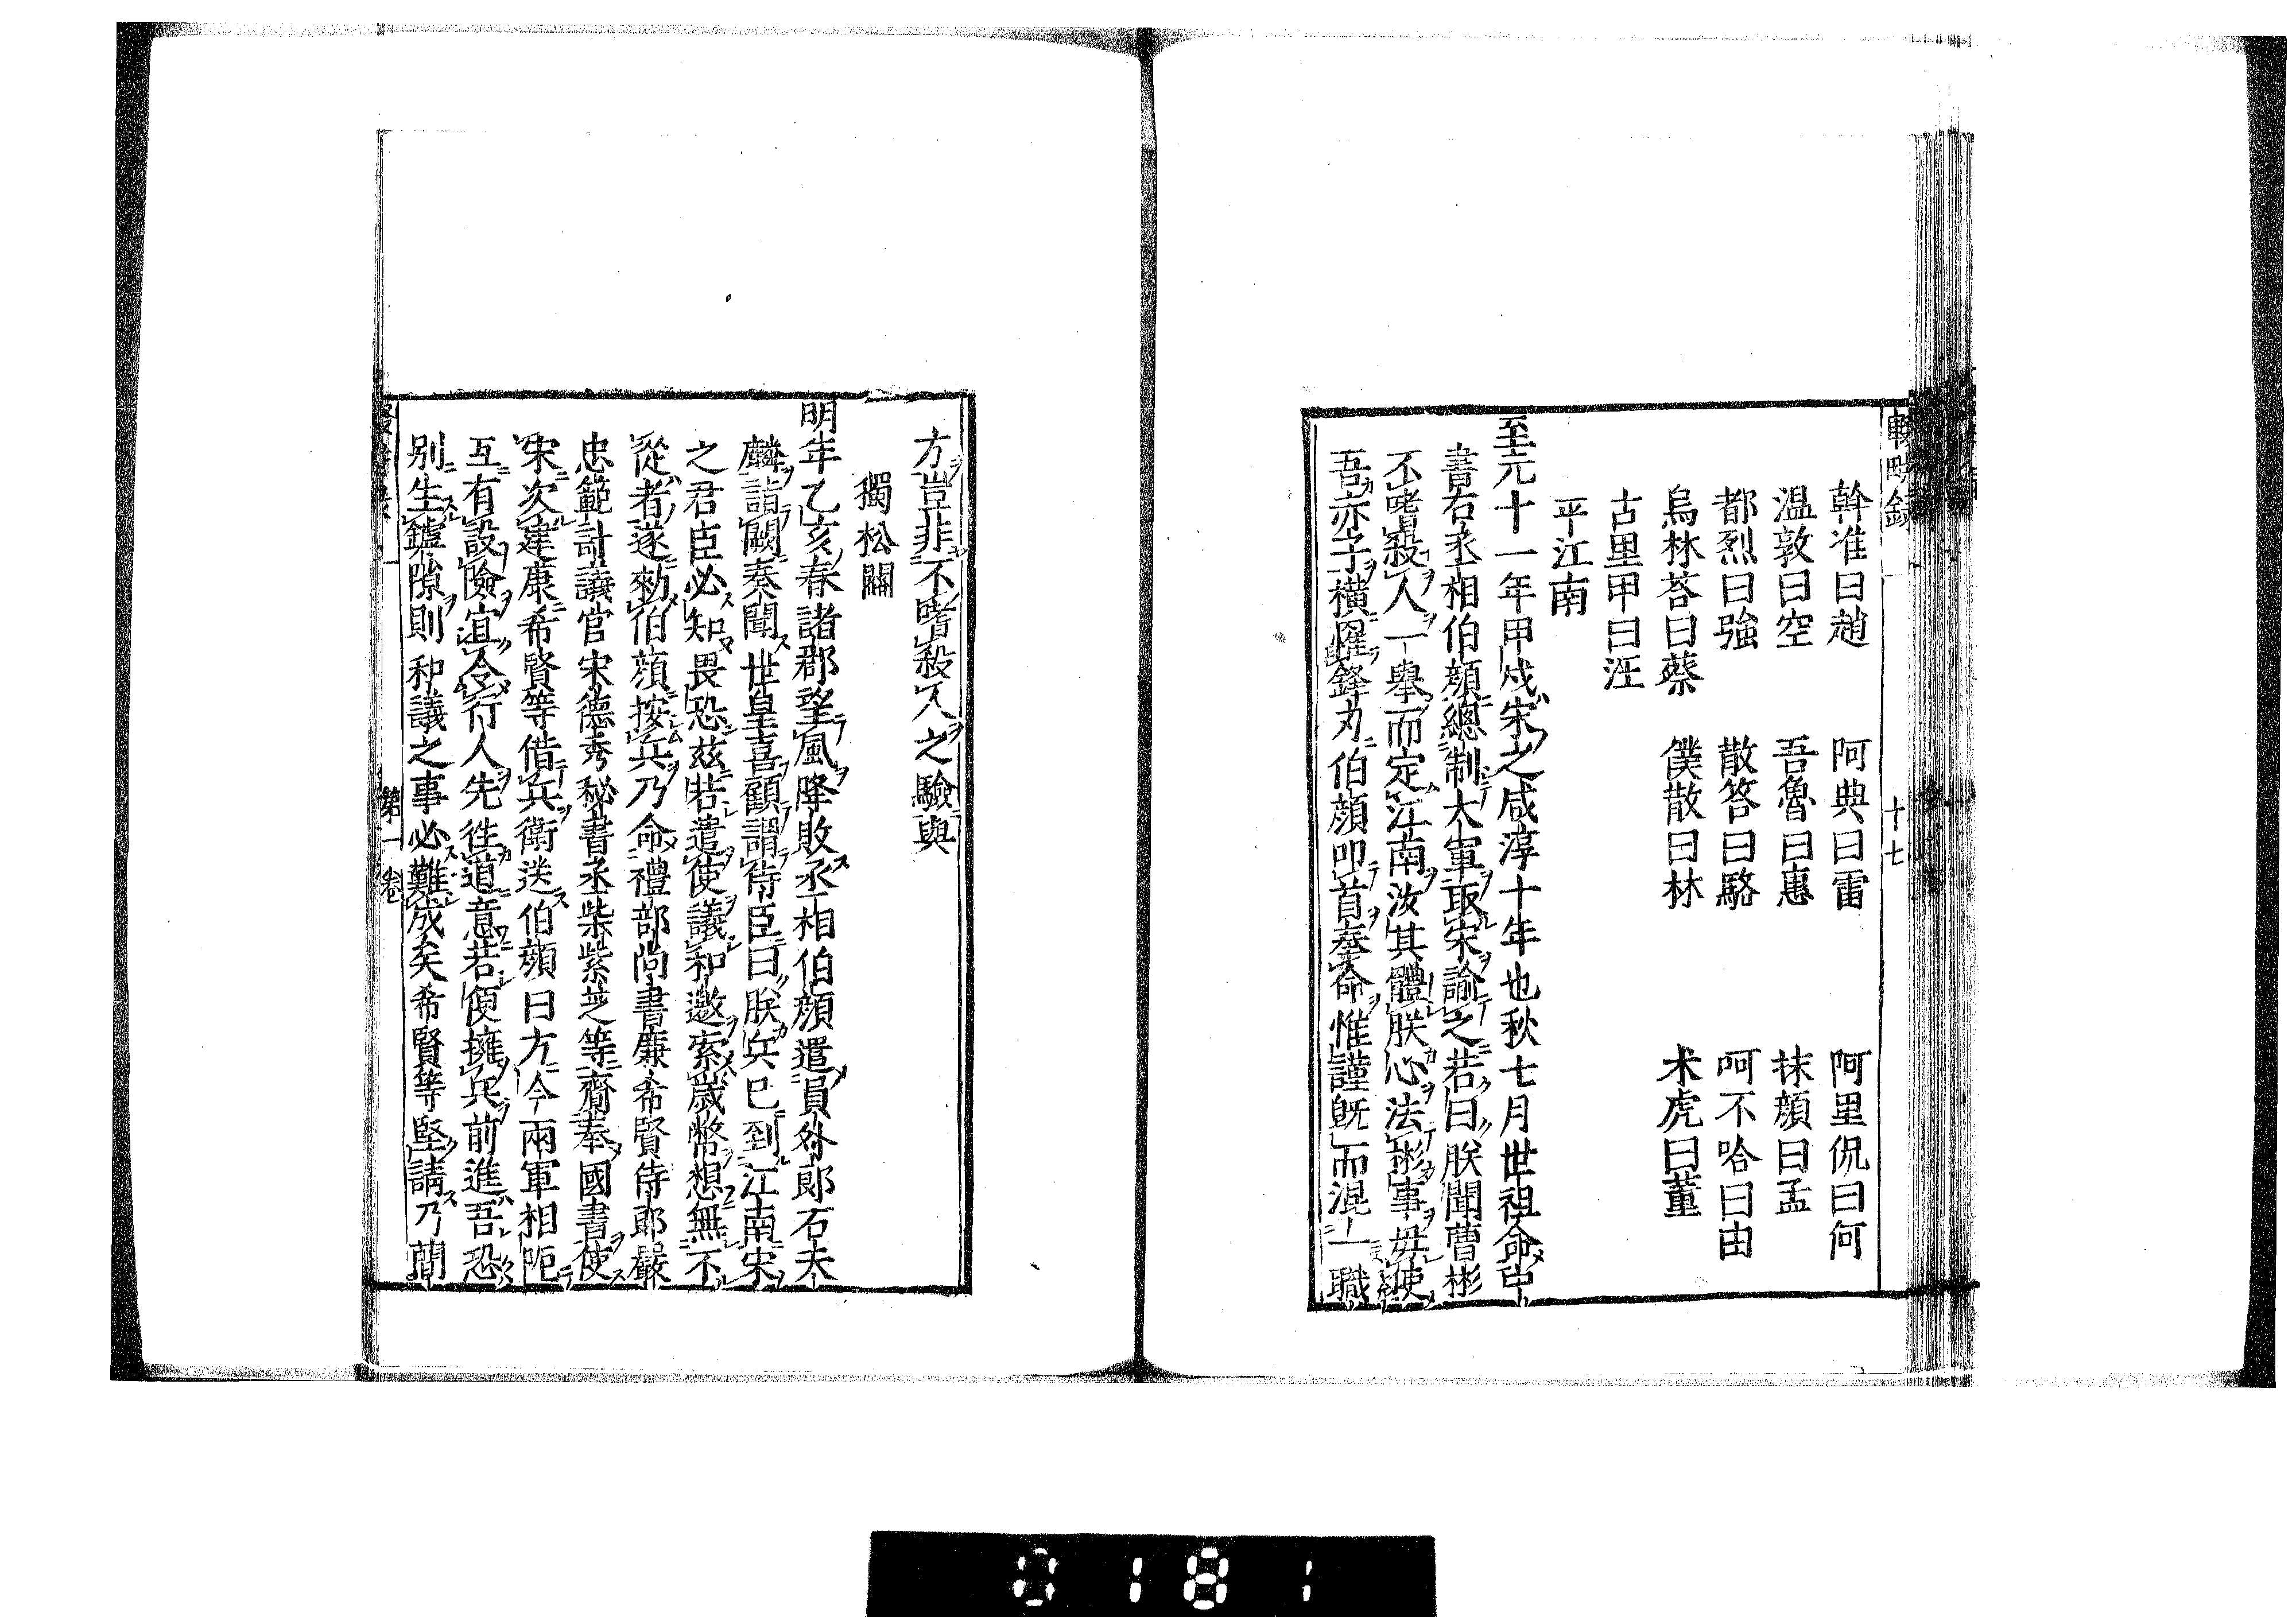 輟畊録 一 十七
斡准曰趙 阿典曰雷 阿里侃曰何
溫敦曰空 吾魯曰惠 抹顏曰孟
都烈曰強 散答曰駱 呵不哈曰由
烏林荅曰蔡 僕散曰林 术虎曰董
古里甲曰汪
平江南
至元十一年甲戌宋之咸淳十年也秋七月世祖命中
書右丞相伯顏總制大軍取宋諭之若曰朕聞曹彬
不嗜殺人一舉而定江南汝其體朕心法彬事毋使
吾赤子橫罹鋒刃伯顏叩首奉命惟謹既而混一職
方豈非不嗜殺人之驗與
獨松關
明年乙亥春諸郡望風降敗丞相伯顏遣員外郎石天
麟詣闕奏聞世皇喜顧謂侍臣曰朕兵已到江南宋
之君臣必知畏恐茲若遣使議和邀索歲幣想無不
從者遂勑伯顏按兵乃命禮部尚書廉希賢侍郎嚴
忠範計議官宋德秀秘書丞柴紫芝等齎奉國書使
宋次建康希賢等借兵衛送伯顏曰方今兩軍相阨
互有設險宜令行人先徃道意若便擁兵前進吾恐
別生鑪隙則和議之事必難成矣希賢等堅請乃蕳
第一卷
0181